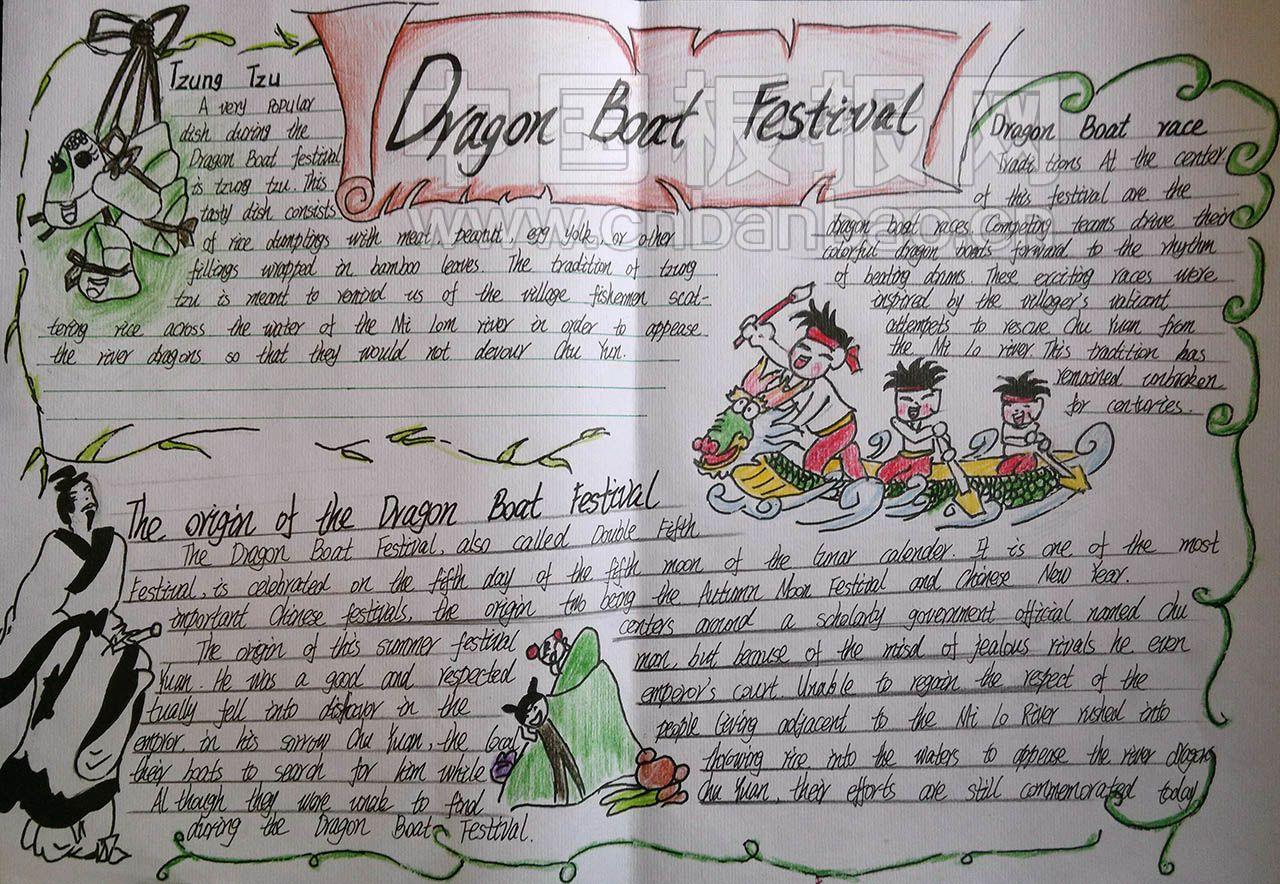 Dragon Boat Festival
中国板报网
www.cnbanbao.cn
Tzung Tzu
A very popular
dish during the
Dragon Boat festival
is tzung tzu. This
tasty dish consists
of rice dumplings with meat, peanut, egg yolk, or other
fillings wrapped in bamboo leaves. The tradition of tzung
tzu is meant to remind us of the village fishermen scat-
tering rice across the water of the Mi Lom river in order to appease
the river dragons so that they would not devour Chu Yun.
Dragon Boat race
Traditions At the center
of this festival are the
dragon boat races. Competing teams drive their
colorful dragon boats forward to the rhythm
of beating drums. These exciting races were
inspired by the villager's valicant
attempets to rescue Chu Yuan from
the Mi Lo river. This tradition has
remained unbroken
for centuries.
The origin of the Dragon Boat Festival
The Dragon Boat Festival, also called Double Fifth
Festival, is celebrated on the fifth day of the fifth moon of the lunar calender. It is one of the most
important Chinese festivals, the origin two being the Autumn Moon Festival and Chinese New Year.
The origin of this summer festival centers around a scholarly government official named Chu
Yuan. He was a good and respected man, but because of the misd of jealous rivals he even
tually fell into disfavor in the emperor's court. Unable to regain the respect of the
empror, in his sorrow Chu Yuan, the local people living adjacent to the Mi Lo River rushed into
their boats to search for him while throwing rice into the waters to appease the river dragons
Although they were unale to find Chu Yuan, their efforts are still commemorated today
during the Dragon Boat Festival.